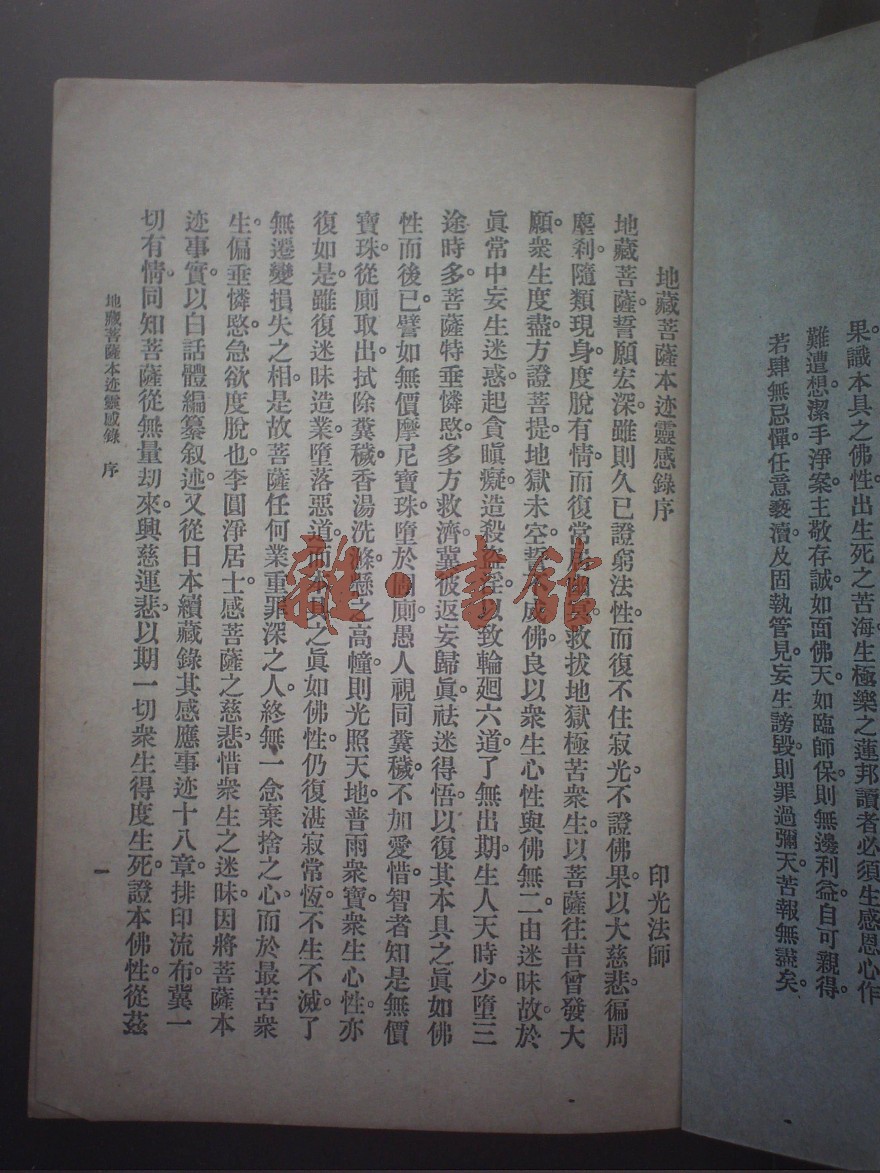 果識本具之佛性出生死之苦海生極樂之蓮邦讀者必須生感恩心作
難遭想潔手淨案主敬存誠如面佛天如臨師保則無邊利益自可親得。
若肆無忌憚任意褻瀆及固執管見妄生謗毀則罪過彌天苦報無盡矣。
地藏菩薩本迹靈感錄序
印光法師
地藏菩薩誓願宏深。雖則久已證窮法性。而復不住寂光。不證佛果。以大慈悲。徧周
塵剎。隨類現身。度脫有情。而復常救拔地獄極苦衆生。以菩薩往昔曾發大
願。衆生度盡。方證菩提。地獄未空。誓不成佛。良以衆生心性與佛無二。由迷昧故。於
眞常中妄生迷惑。起貪瞋癡。造殺盜淫。以致輪廻六道。了無出期。生人天時少。墮三
途時多。菩薩特垂憐愍。多方救濟。冀彼返妄歸眞。袪迷得悟。以復其本具之眞如佛
性而後已。譬如無價摩尼寶珠。墮於圊廁。愚人視同糞穢。不加愛惜。智者知是無價
寶珠。從廁取出。拭除糞穢。香湯洗滌。懸之高幢。則光照天地。普雨衆寶。衆生心性。亦
復如是。雖復迷昧造業。墮落惡道。而本具之眞如佛性。仍復湛寂常恆。不生不滅。了
無遷變損失之相。是故菩薩任何業重罪深之人。終無一念棄捨之心。而於最苦衆
生。偏垂憐愍。急欲度脫也。李圓淨居士感菩薩之慈悲。惜衆生之迷昧。因將菩薩本
迹事實。以白話體編纂叙述。又從日本續藏錄其感應事迹十八章。排印流布。冀一
切有情。同知菩薩從無量劫來。興慈運悲。以期一切衆生得度生死。證本佛性。從茲
地藏菩薩本迹靈感錄 序
一
雜·書館